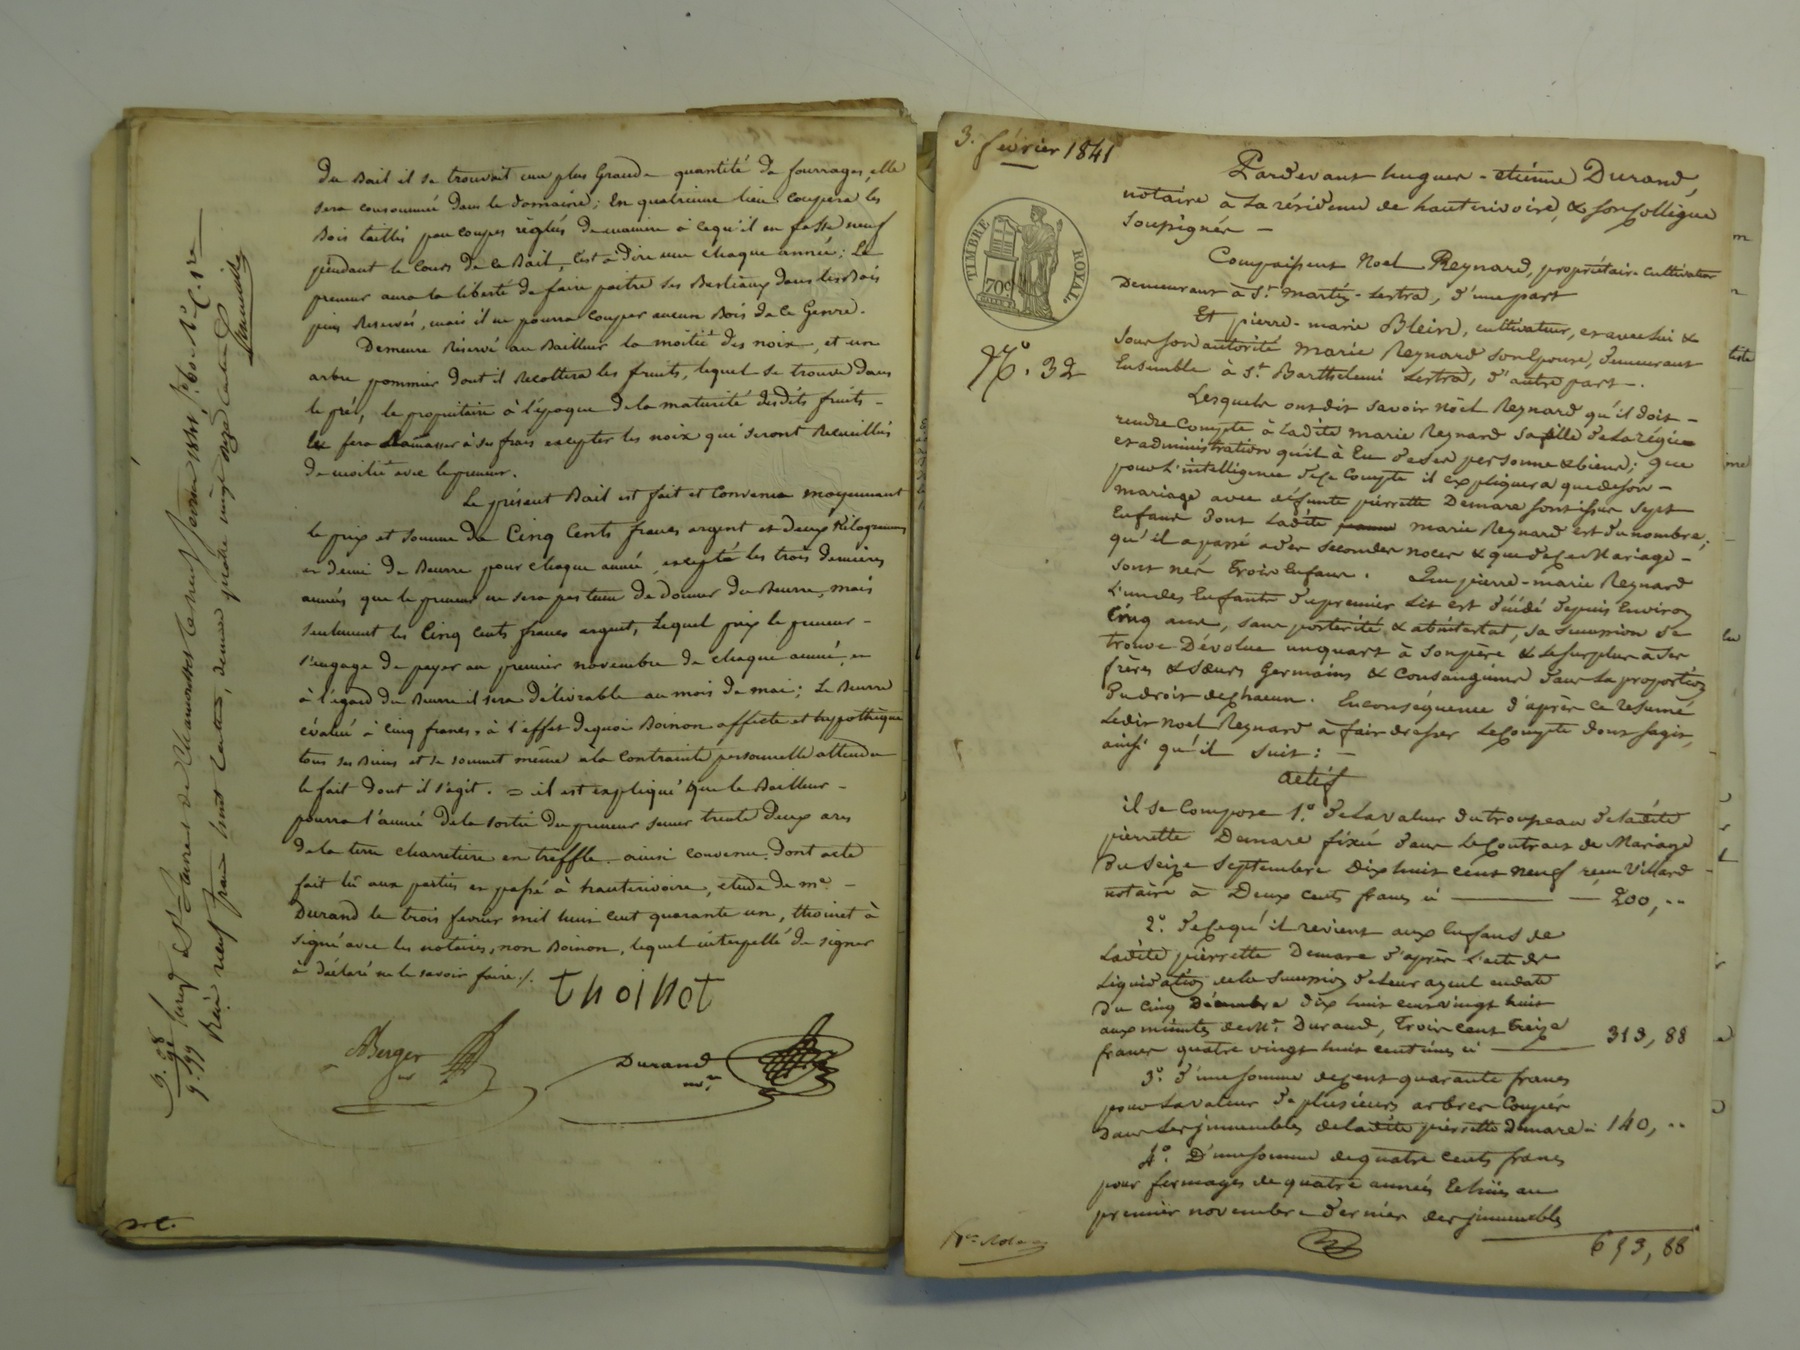 du Bail il se trouvait une plus Grande quantité de fourrages, elle
sera consommée dans le domaine; En quatrieme lieu, coupera les
Bois taillis par coupes réglés de maniere à ce qu'il en fasse neuf
pendant le Cours de ce Bail, C'est à dire une chaque année; Le
preneur aura la liberté de faire paitre ses Bestiaux dans les Bois
pins Réservés, mais il ne pourra Couper aucun Bois de ce Genre.
Demeure Réservé au Bailleur la moitié des noix, et un
arbre pommier dont il Recoltera les fruits, lequel se trouve dans
le pré, le propriétaire à l'époque de la maturité desdits fruits
les fera Ramasser à ses frais excepter les noix qui seront Recueillies
de moitié avec le preneur.
Le présent Bail est fait et Convenu moyennant
le prix et Somme de Cinq Cents francs argent et deux Kilogrammes
et demi de Beurre pour chaque année, excepté les trois dernières
années que le preneur ne sera pas tenu de donner du Beurre, mais
seulement les Cinq cents francs argent, Lequel prix le preneur
s'engage de payer au premier novembre de chaque année, et
à l'égard du Beurre il sera délivrable au mois de mai; Le Beurre
évalué à cinq francs, à l'effet de quoi Boinon affecte et hypothèque
tous ses Biens et se soumet même à la Contrainte personnelle attendu
le fait dont il s'agit. = il est expliqué que le Bailleur
pourra l'année de la sortie du preneur semer trente deux ares
de la terre charretiere en trèffle. ainsi convenu. Dont acte
fait lû aux parties et passé à hauterivoire, etude de me
Durand le trois fevrier mil huit cent quarante un, thoinet à
signé avec les notaires, non Boinon, lequel interpellé de signer
à déclaré ne le savoir faire./.
thoinot
ABerger
Durand
nre
3. février 1841
TIMBRE ROYAL
70c
No. 32
Pardevant hugues-etienne Durand,
notaire à la résidence de hauterivoire, & son Collègue
Soussignés
Comparaissent Noel Reynard, propriétaire-cultivateur
Demeurant à St. Martin-Lestra, d'une part
Et pierre-marie Blein, cultivateur, et avec lui &
Sous son autorité Marie Reynard son Epouse, demeurant
Ensemble à St. Barthelemi Lestra, d'autre part.
Lesquels ont dit savoir Noël Reynard qu'il doit
rendre Compte à Ladite Marie Reynard Sa fille de La régie
et administration qu'il à Eu de Ses personne & biens; que
pour L'intelligence de Ce Compte il Expliquera que de son
Mariage avec défunte pierrette Demare sont issus sept
Enfans dont Ladite Marie Reynard est du nombre;
qu'il a passé a des Secondes noces & que de Ce Mariage
sont nés trois Enfans. Que pierre-marie Reynard
L'un des Enfants du premier Lit est décédé depuis Environ
Cinq ans, sans postérité & abintestat, sa succession se
trouve Dévolue un quart à son père & Le surplus à Ses
frères & Sœurs Germains & Consanguins dans La proportion
Du droit de Chacun. En conséquence d'après ce résumé
Ledit Noel Reynard à fait dresser Le Compte dont s'agit,
ainsi qu'il suit:
actif
il se Compose 1o. de La valeur du trousseau de Ladite
pierrette Demare fixée dans Le Contrat de Mariage
Du Seize Septembre Dix huit cent neuf reçu Villard
notaire à Deux Cents francs ci 200, ..
2o. de Ce qu'il revient aux Enfans de
Ladite pierrette Demare d'après L'acte de
Liquidation de la Succession de Leur ayeul en date
Du Cinq Décembre Dix huit cent vingt huit
aux minutes de Me. Durand, Trois Cent Treize
francs quatre vingt huit centimes ci 313, 88
3o. d'une Somme de Cent quarante francs
pour La valeur de plusieurs arbres Coupés
Dans Les immeubles de ladite pierrette Demare ci 140, ..
4o. D'une Somme de quatre Cents francs
pour fermages de quatre années Echues au
premier novembre dernier des immeubles
653, 88